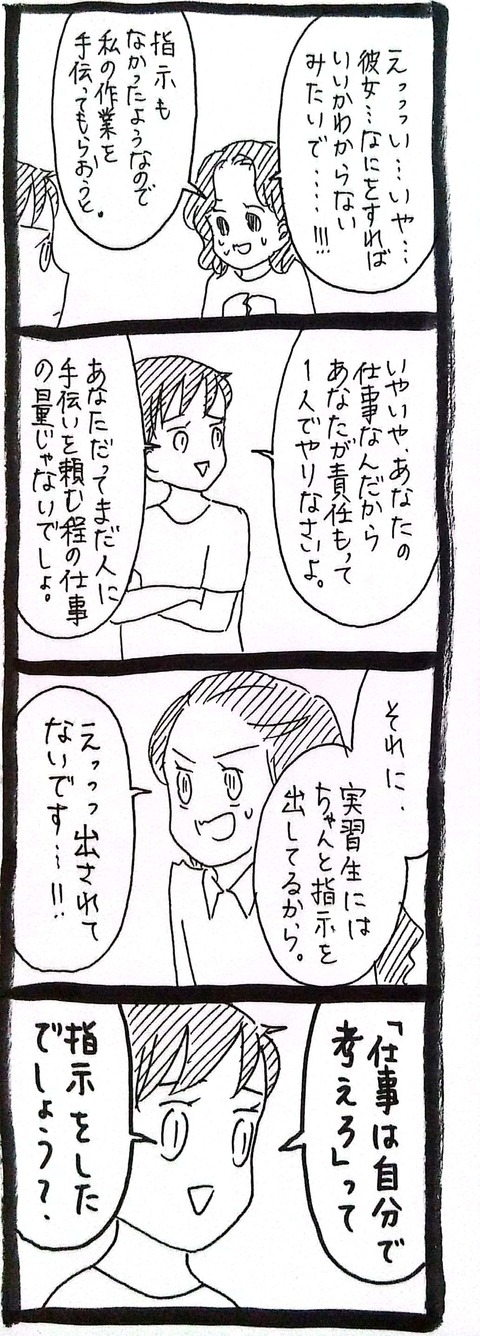 えっっっい…いや…
彼女…なにをすれば
いいかわからない
みたいで……!!!
指示も
なかったようなので
私の作業を
手伝ってもらおうと。
いやいや、あなたの
仕事なんだから
あなたが責任もって
1人でやりなさいよ。
あなただってまだ人に
手伝いを頼む程の仕事
の量じゃないでしょ。
それに、
実習生には
ちゃんと指示を
出してるから。
えっっっ出されて
ないです…!!
「仕事は自分で
考えろ」って
指示をした
でしょう?